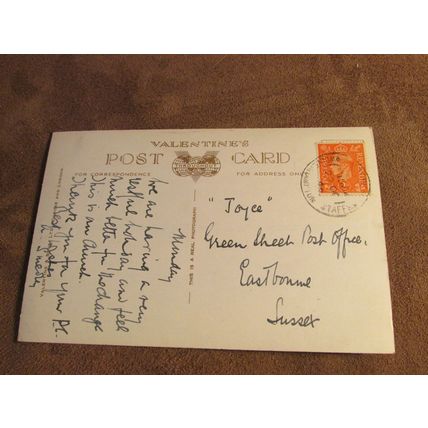 VALENTINE'S
POST CARD
FOR CORRESPONDENCE
FOR ADDRESS ONLY
THROUGHOUT
THIS IS A REAL PHOTOGRAPH
Monday
We are having a very
restful holiday and feel
much better for the change
This is our church.
Thank you for your P.C.
"Joyce"
Green Street Post Office,
Eastbourne
Sussex
STAFFS